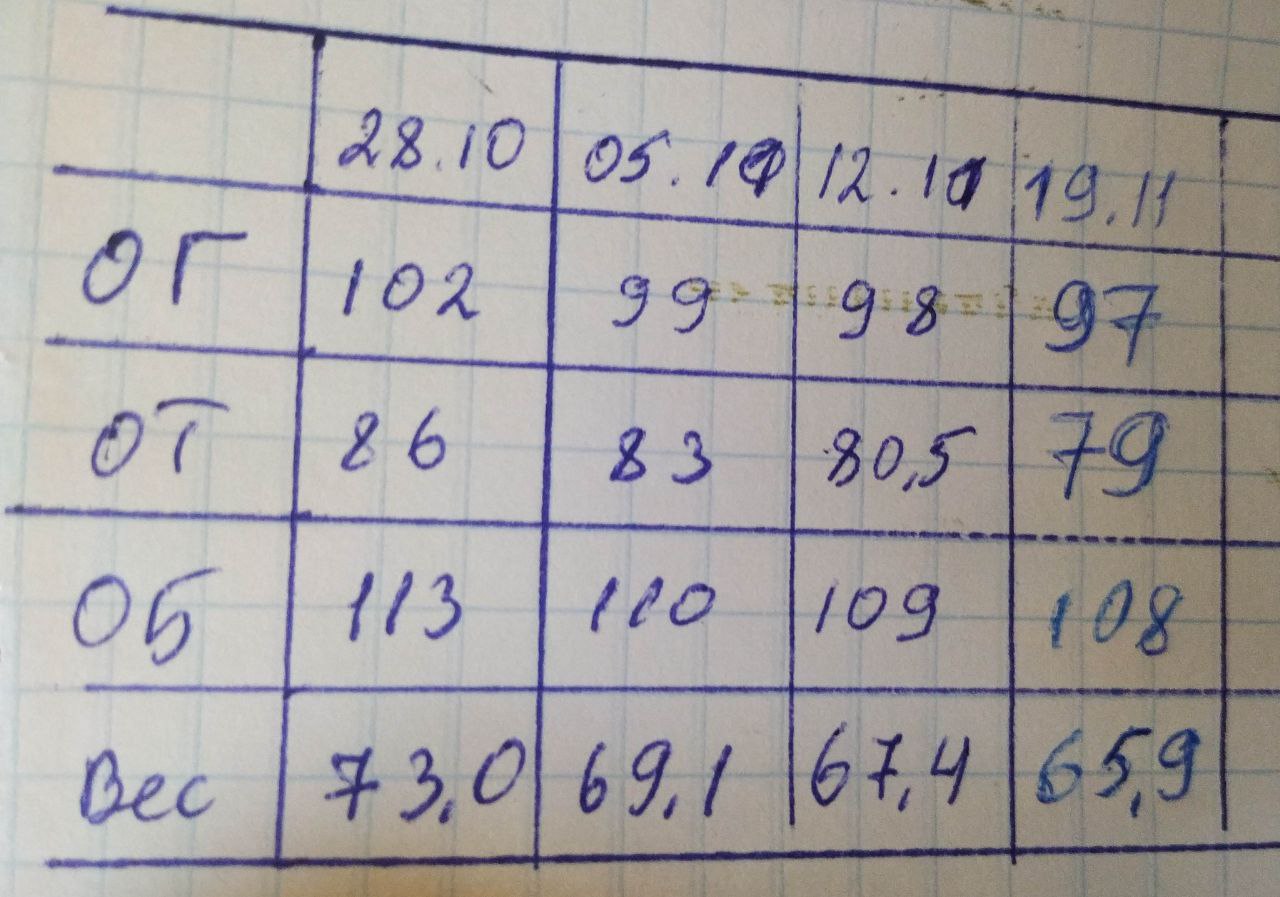 28.10 05.11 12.11 19.11
ОГ 102 99 98 97
ОТ 86 83 80,5 79
ОБ 113 110 109 108
Вес 73,0 69,1 67,4 65,9